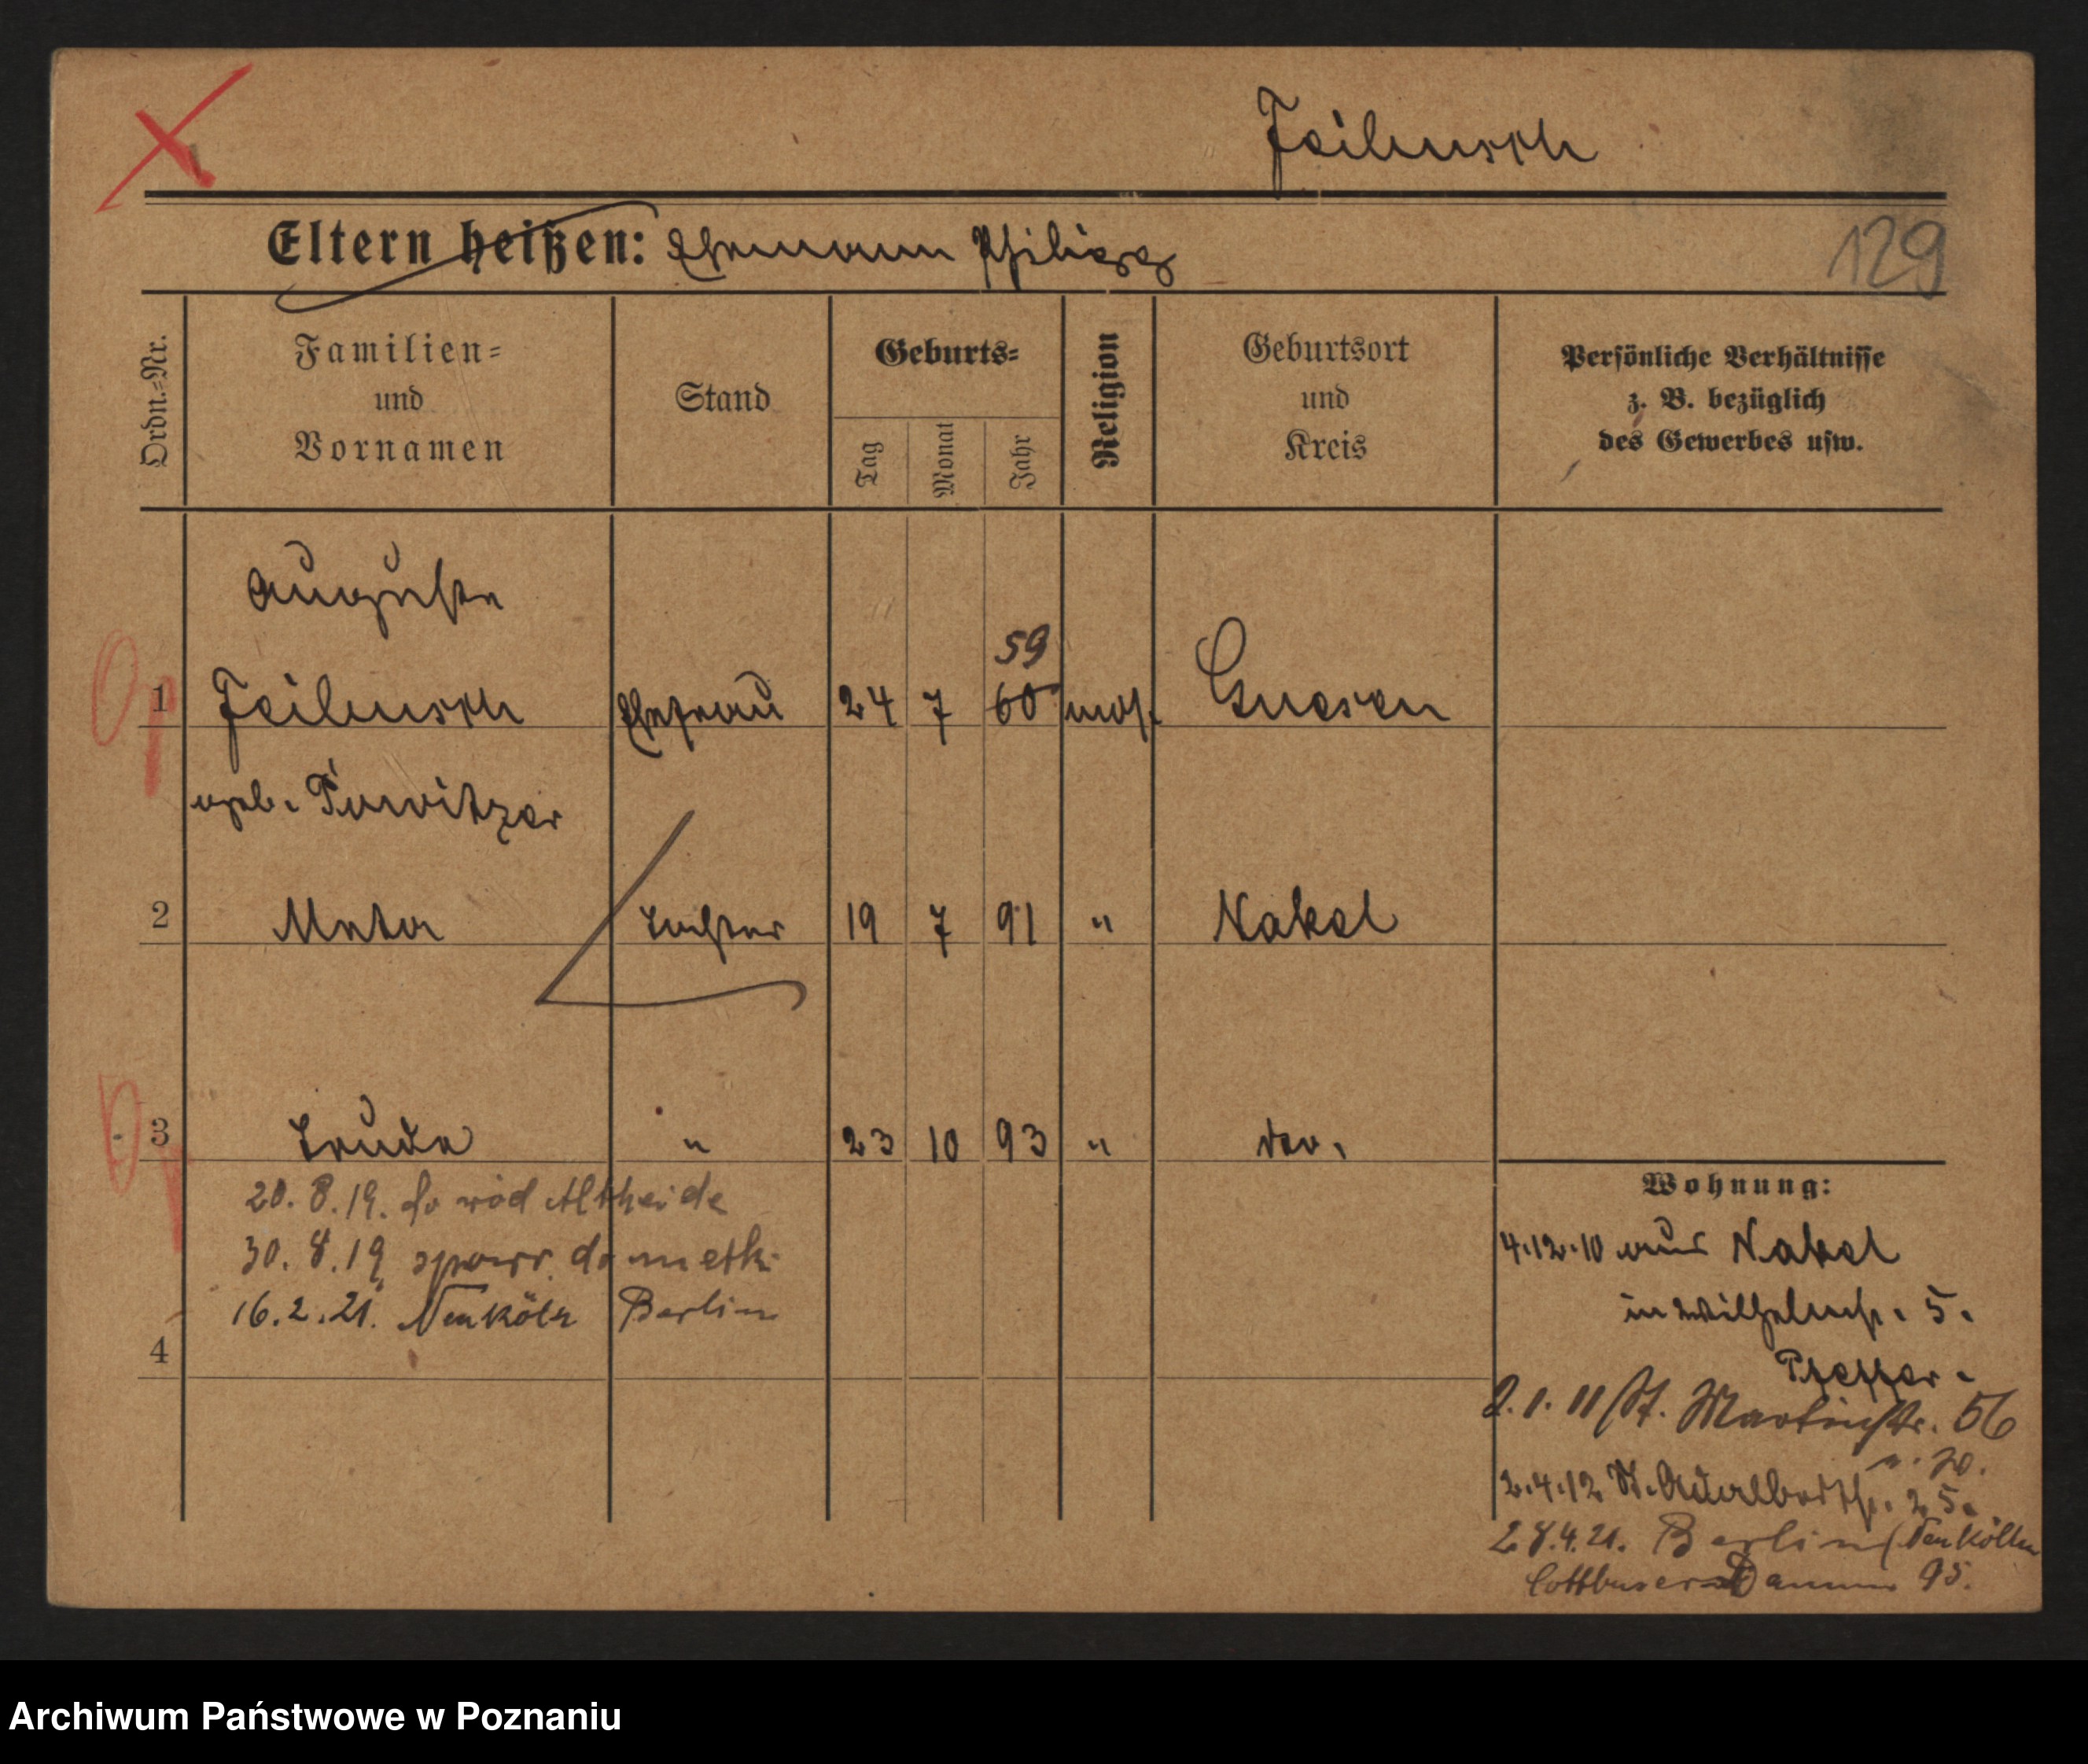 Feilnusch
129
Eltern heißen: Ehemann Philipp
Ordn.-Nr.
Familien-
und
Vornamen
Stand
Geburts-
Tag
Monat
Jahr
Religion
Geburtsort
und
Kreis
Persönliche Verhältnisse
z. B. bezüglich
des Gewerbes usw.
Auguste
59
1 Feilnusch Ehefrau 24 7 60 mos. Gnesen
geb. Purwitzer
2 Meta Tochter 19 7 91 " Nakel
3 Trude " 23 10 93 " do.
20. 8. 19. do wód Altheide
30. 8. 19 spowr. do matki
16. 2. 21. Neukölln Berlin
4
Wohnung:
4.12.10 aus Nakel
in Wilhelmstr. 5.
Pfeffer.
2. 1. 11 St. Martinstr. 56
n. 70.
2.4.12 St. Adalbertstr. 25.
28.4.21. Berlin (Neukölln
Cottbuser Damm 95.
Archiwum Państwowe w Poznaniu